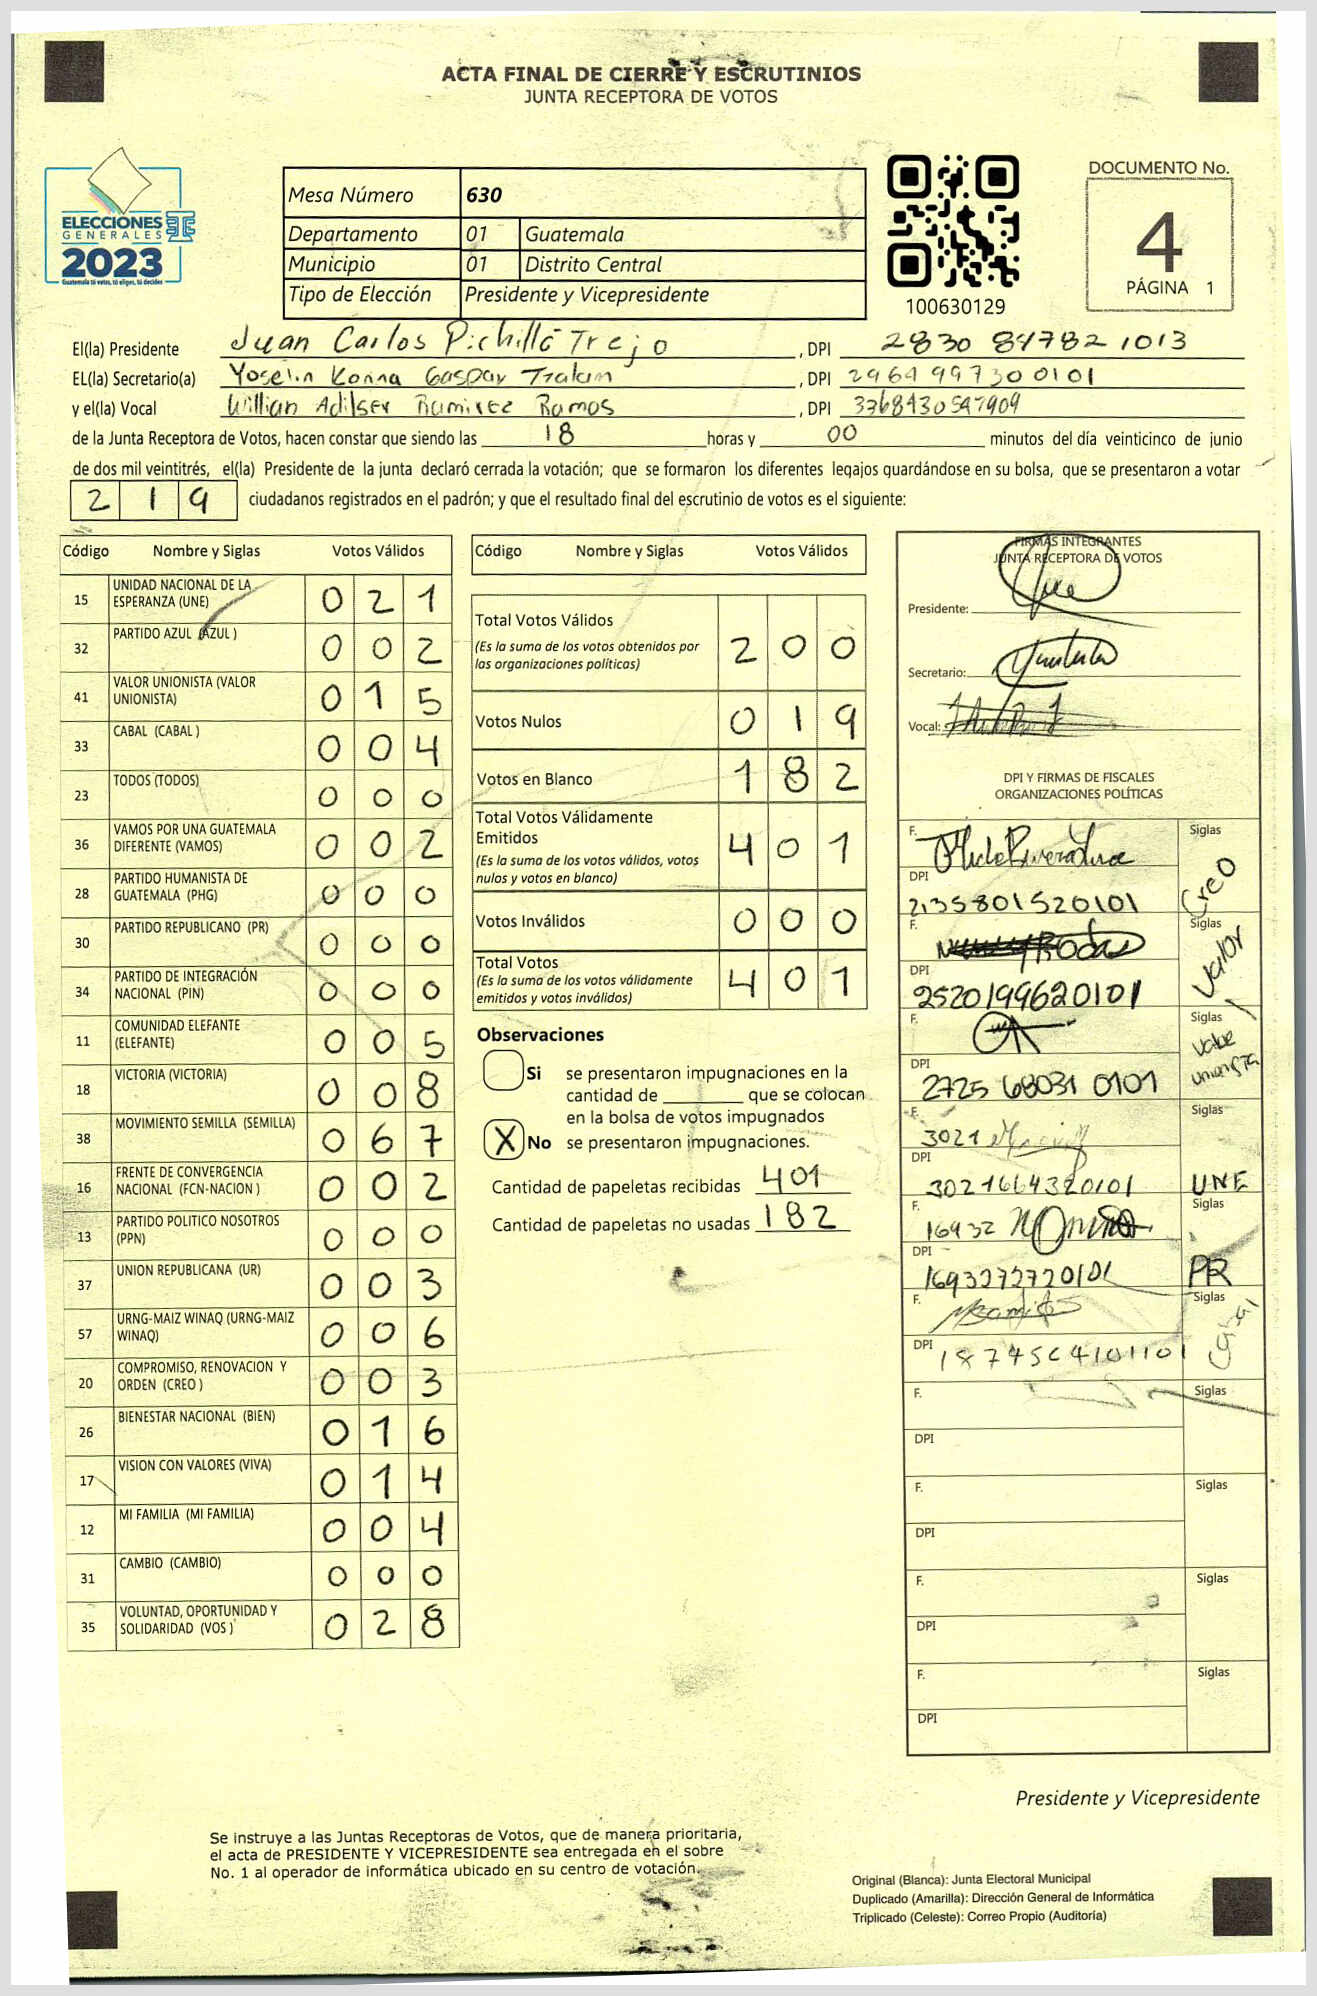 ACTA FINAL DE CIERRE Y ESCRUTINIOS
JUNTA RECEPTORA DE VOTOS
ELECCIONES
GENERALES
2023
Guatemala tú votas, tú eliges, tú decides
Mesa Número 630
Departamento 01 Guatemala
Municipio 01 Distrito Central
Tipo de Elección Presidente y Vicepresidente
100630129
DOCUMENTO No.
4
PÁGINA 1
El(la) Presidente Juan Carlos Pichillá Trejo, DPI 2830 847821013
EL(la) Secretario(a) Yoselin Gaspar, DPI 2964997300101
y el(la) Vocal Willian Adilser Ramirez Ramos, DPI
de la Junta Receptora de Votos, hacen constar que siendo las 18 horas y 00 minutos del día veinticinco de junio
de dos mil veintitrés, el(la) Presidente de la junta declaró cerrada la votación; que se formaron los diferentes legajos guardándose en su bolsa, que se presentaron a votar
219 ciudadanos registrados en el padrón; y que el resultado final del escrutinio de votos es el siguiente:
Código Nombre y Siglas Votos Válidos
15 UNIDAD NACIONAL DE LA ESPERANZA (UNE) 0 2 1
32 PARTIDO AZUL (AZUL ) 0 0 2
41 VALOR UNIONISTA (VALOR UNIONISTA) 0 1 5
33 CABAL (CABAL ) 0 0 4
23 TODOS (TODOS) 0 0 0
36 VAMOS POR UNA GUATEMALA DIFERENTE (VAMOS) 0 0 2
28 PARTIDO HUMANISTA DE GUATEMALA (PHG) 0 0 0
30 PARTIDO REPUBLICANO (PR) 0 0 0
34 PARTIDO DE INTEGRACIÓN NACIONAL (PIN) 0 0 0
11 COMUNIDAD ELEFANTE (ELEFANTE) 0 0 5
18 VICTORIA (VICTORIA) 0 0 8
38 MOVIMIENTO SEMILLA (SEMILLA) 0 6 7
16 FRENTE DE CONVERGENCIA NACIONAL (FCN-NACION ) 0 0 2
13 PARTIDO POLITICO NOSOTROS (PPN) 0 0 0
37 UNION REPUBLICANA (UR) 0 0 3
57 URNG-MAIZ WINAQ (URNG-MAIZ WINAQ) 0 0 6
20 COMPROMISO, RENOVACION Y ORDEN (CREO ) 0 0 3
26 BIENESTAR NACIONAL (BIEN) 0 1 6
17 VISION CON VALORES (VIVA) 0 1 4
12 MI FAMILIA (MI FAMILIA) 0 0 4
31 CAMBIO (CAMBIO) 0 0 0
35 VOLUNTAD, OPORTUNIDAD Y SOLIDARIDAD (VOS ) 0 2 8
Código Nombre y Siglas Votos Válidos
Total Votos Válidos 2 0 0
(Es la suma de los votos obtenidos por
las organizaciones políticas)
Votos Nulos 0 1 9
Votos en Blanco 1 8 2
Total Votos Válidamente
Emitidos 4 0 1
(Es la suma de los votos válidos, votos
nulos y votos en blanco)
Votos Inválidos 0 0 0
Total Votos 4 0 1
(Es la suma de los votos válidamente
emitidos y votos inválidos)
Observaciones
Si se presentaron impugnaciones en la
cantidad de ________ que se colocan
en la bolsa de votos impugnados
X No se presentaron impugnaciones.
Cantidad de papeletas recibidas 401
Cantidad de papeletas no usadas 182
FIRMAS INTEGRANTES
JUNTA RECEPTORA DE VOTOS
Presidente:
Secretario:
Vocal:
DPI Y FIRMAS DE FISCALES
ORGANIZACIONES POLÍTICAS
F. Siglas
DPI 2135801520101 Creo
F. Siglas
DPI 2520199620101 Valor
F. Siglas
DPI 2725 68031 0101
F. 3021 Siglas
DPI 3021664320101 UNE
F. 16932 Siglas
DPI 1693272720101 PR
F. Siglas
DPI
F. Siglas
DPI
F. Siglas
DPI
F. Siglas
DPI
F. Siglas
DPI
Presidente y Vicepresidente
Se instruye a las Juntas Receptoras de Votos, que de manera prioritaria,
el acta de PRESIDENTE Y VICEPRESIDENTE sea entregada en el sobre
No. 1 al operador de informática ubicado en su centro de votación.
Original (Blanca): Junta Electoral Municipal
Duplicado (Amarilla): Dirección General de Informática
Triplicado (Celeste): Correo Propio (Auditoría)